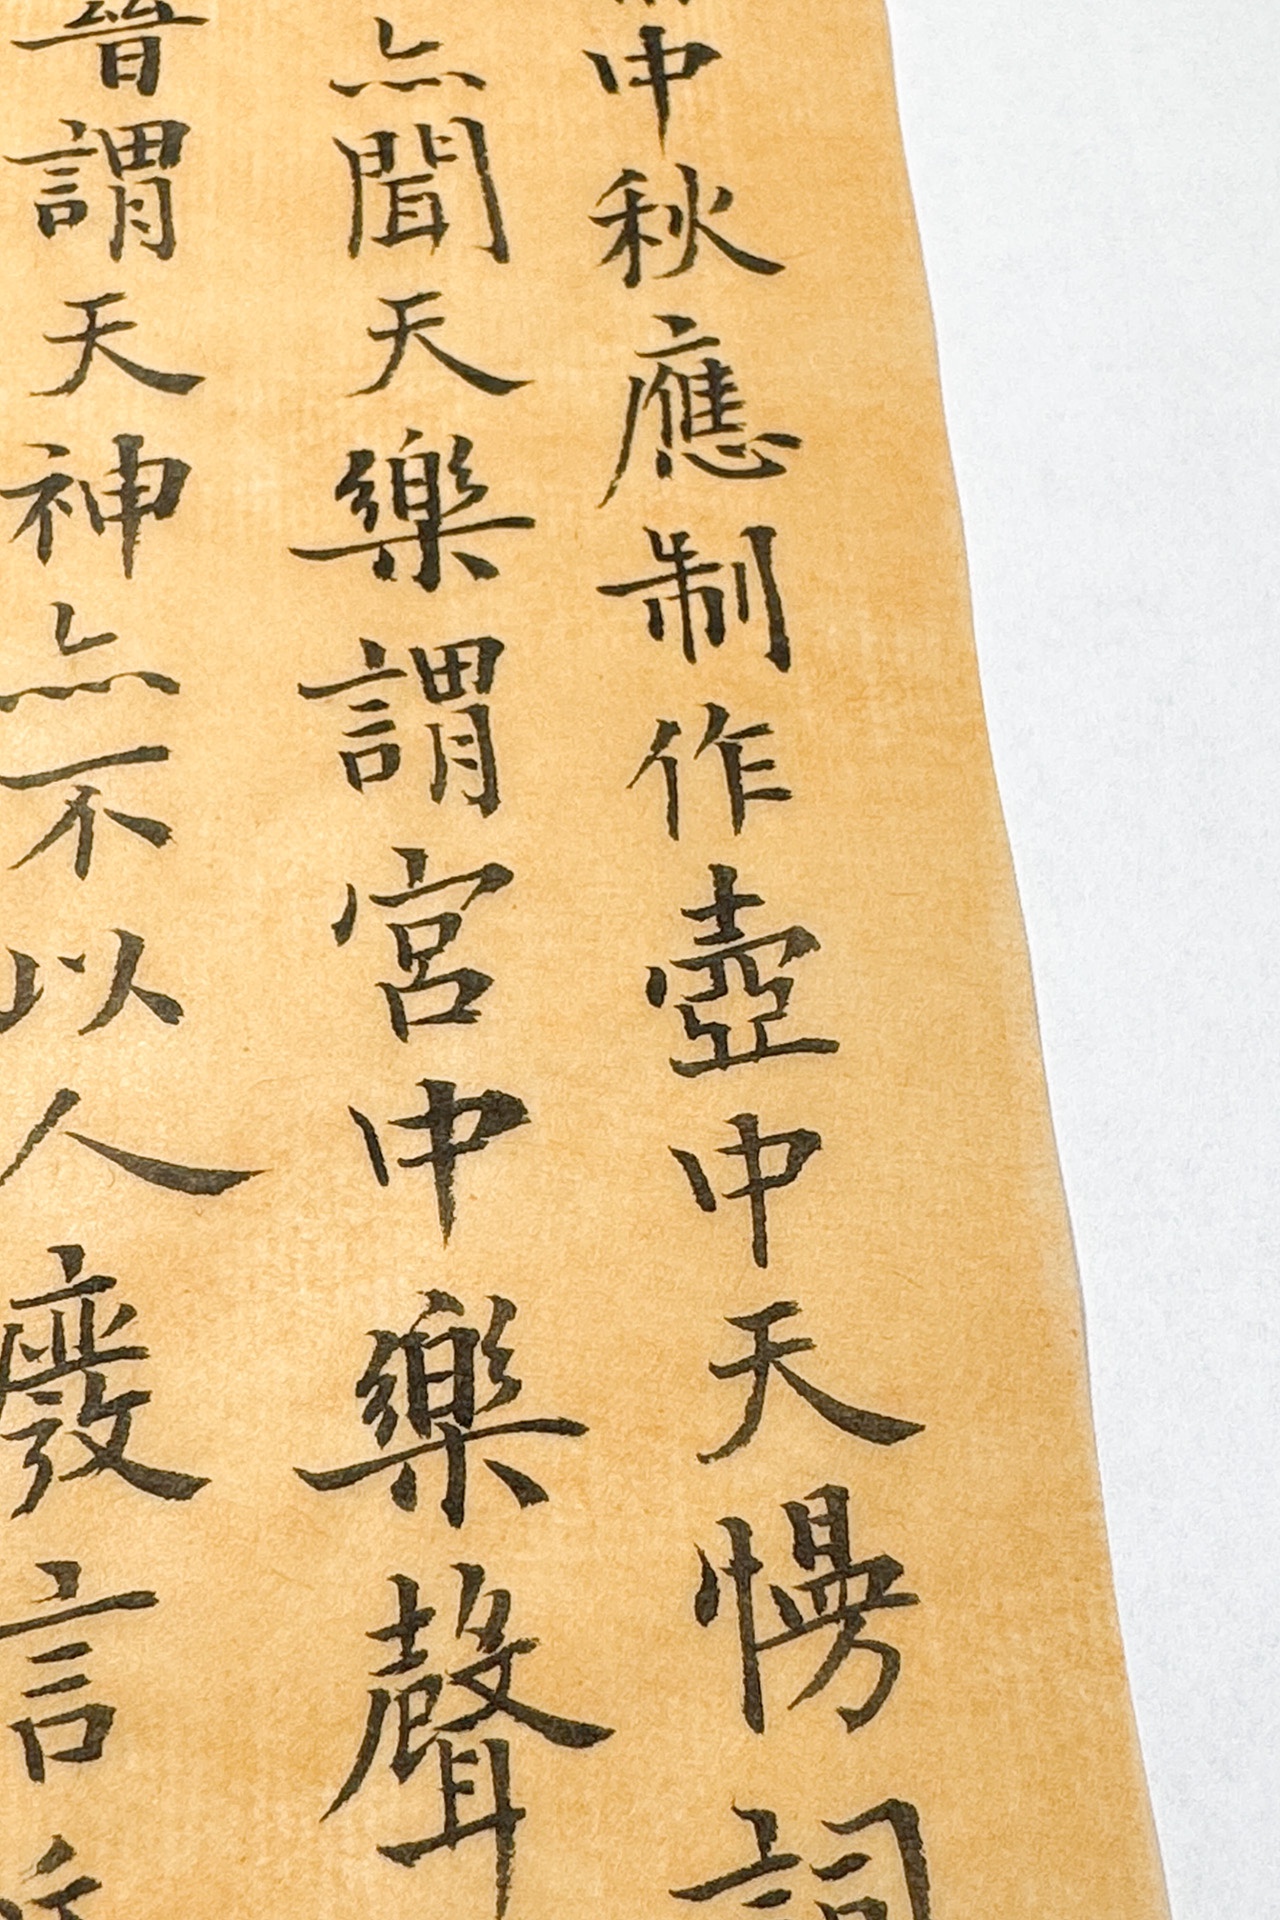 中秋應制作壺中天慢詞
亦聞天樂謂宮中樂聲
昔謂天神亦不以人廢言